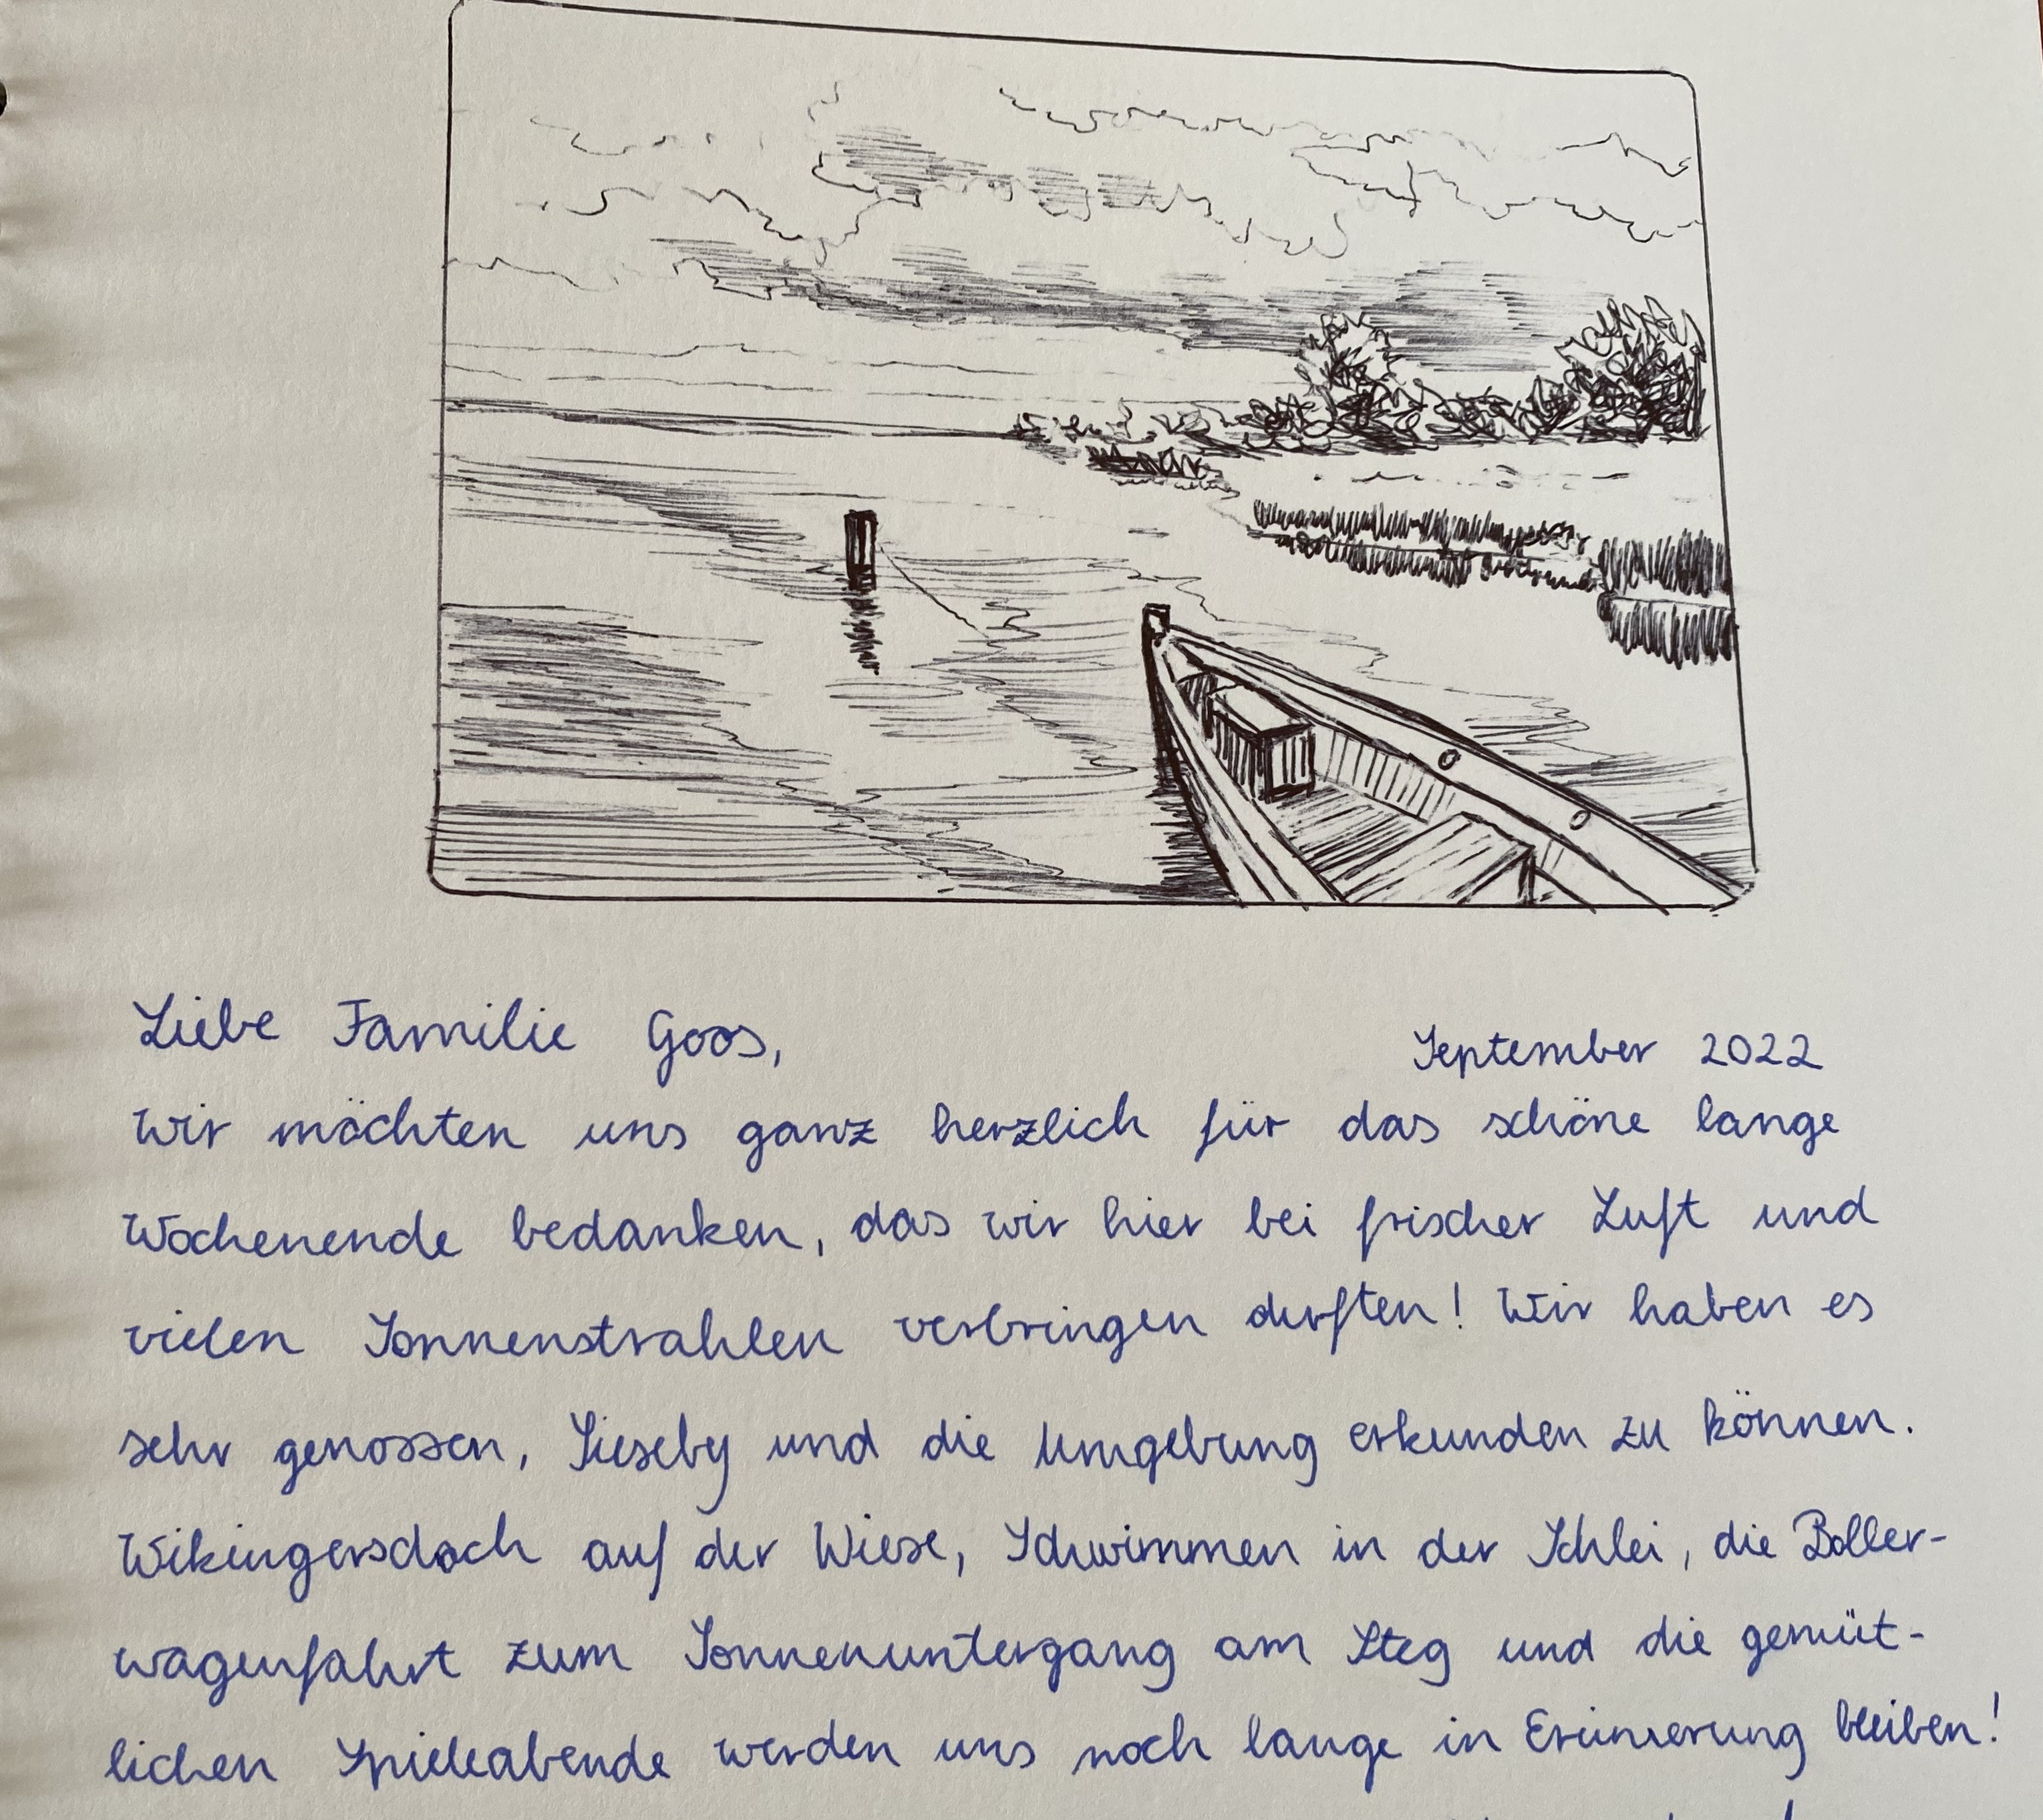 Liebe Familie Goos,
September 2022
Wir möchten uns ganz herzlich für das schöne lange
Wochenende bedanken, das wir hier bei frischer Luft und
vielen Sonnenstrahlen verbringen durften! Wir haben es
sehr genossen, Sieseby und die Umgebung erkunden zu können.
Wikingerschach auf der Wiese, Schwimmen in der Schlei, die Boller-
wagenfahrt zum Sonnenuntergang am Steg und die gemüt-
lichen Spieleabende werden uns noch lange in Erinnerung bleiben!